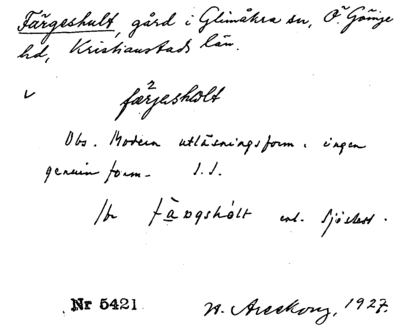 Färgeshult, gård i Glimåkra sn, Ö. Göinge
hd, Kristianstads län.
färjeshòlt
Obs. Modern utläsningsform, ingen
genuin form. S.S.
enl. Sjöstedt.
Nr 5421
W. Areskoug, 1927.